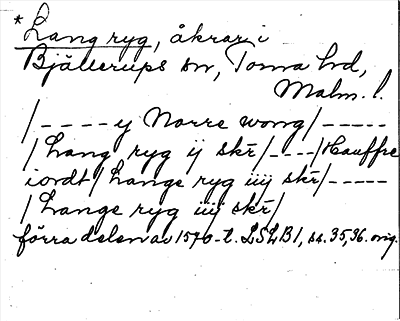 * Lang ryg, åkrar i
Bjällerups sn, Torna hd,
Malm. l.
/----y Norre wong/-----
/Lang ryg ij skr/----/Hauffre
iordt/Lange ryg iiij skr/-----
/Lange ryg iiij skr/
förra delen av 1570-t. LSLB1, ss. 35, 36. orig.